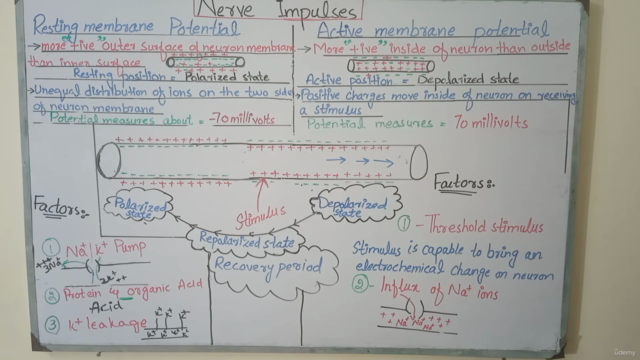 Nerve Impulses
Resting membrane Potential
→more "+ive" outer surface of neuron membrane
than inner surface
Resting position = Polarized state
→Unequal distribution of ions on the two side
of neuron membrane
Potential measures about = -70 millivolts
Active membrane potential
→More "+ive" inside of neuron than outside
Active position = Depolarized state
→Positive charges move inside of neuron on receiving
a stimulus
Potential measures = 70 millivolts
Stimulus
Polarized
state
Depolarized
state
Repolarized state
Recovery period
Factors:-
① Na⁺/K⁺ Pump
3Na⁺
② Protein & organic Acid
Acid
③ K⁺ leakage
K⁺ K⁺ K⁺
K⁺ K⁺ K⁺ K⁺
Factors:-
① - Threshold stimulus
Stimulus is capable to bring an
electrochemical change on neuron
② - Influx of Na⁺ ions
Na⁺ Na⁺ Na⁺
Udemy